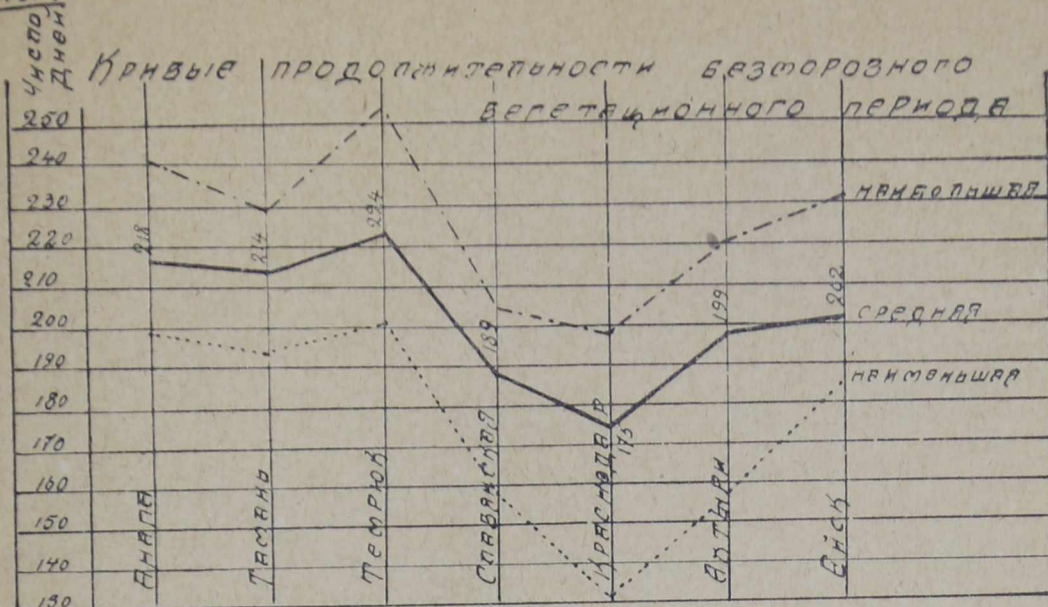 Число
дней
Кривые продолжительности безморозного
вегетационного периода
250
240
230
220
210
200
190
180
170
160
150
140
130
218
214
224
189
175
199
202
наибольшая
средняя
наименьшая
Анапа
Тамань
Темрюк
Славянская
Краснодар
Ейск